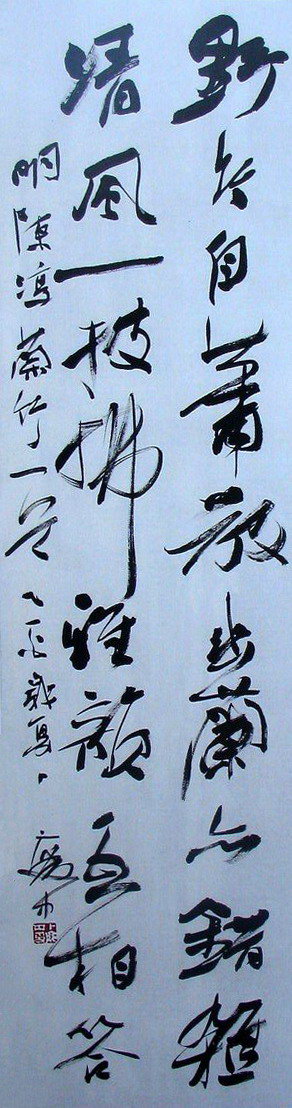 野竹自蕭散幽蘭亦錯雜
清風一披拂雅韻互相答
明陳淳蘭竹一首乙丑歲夏